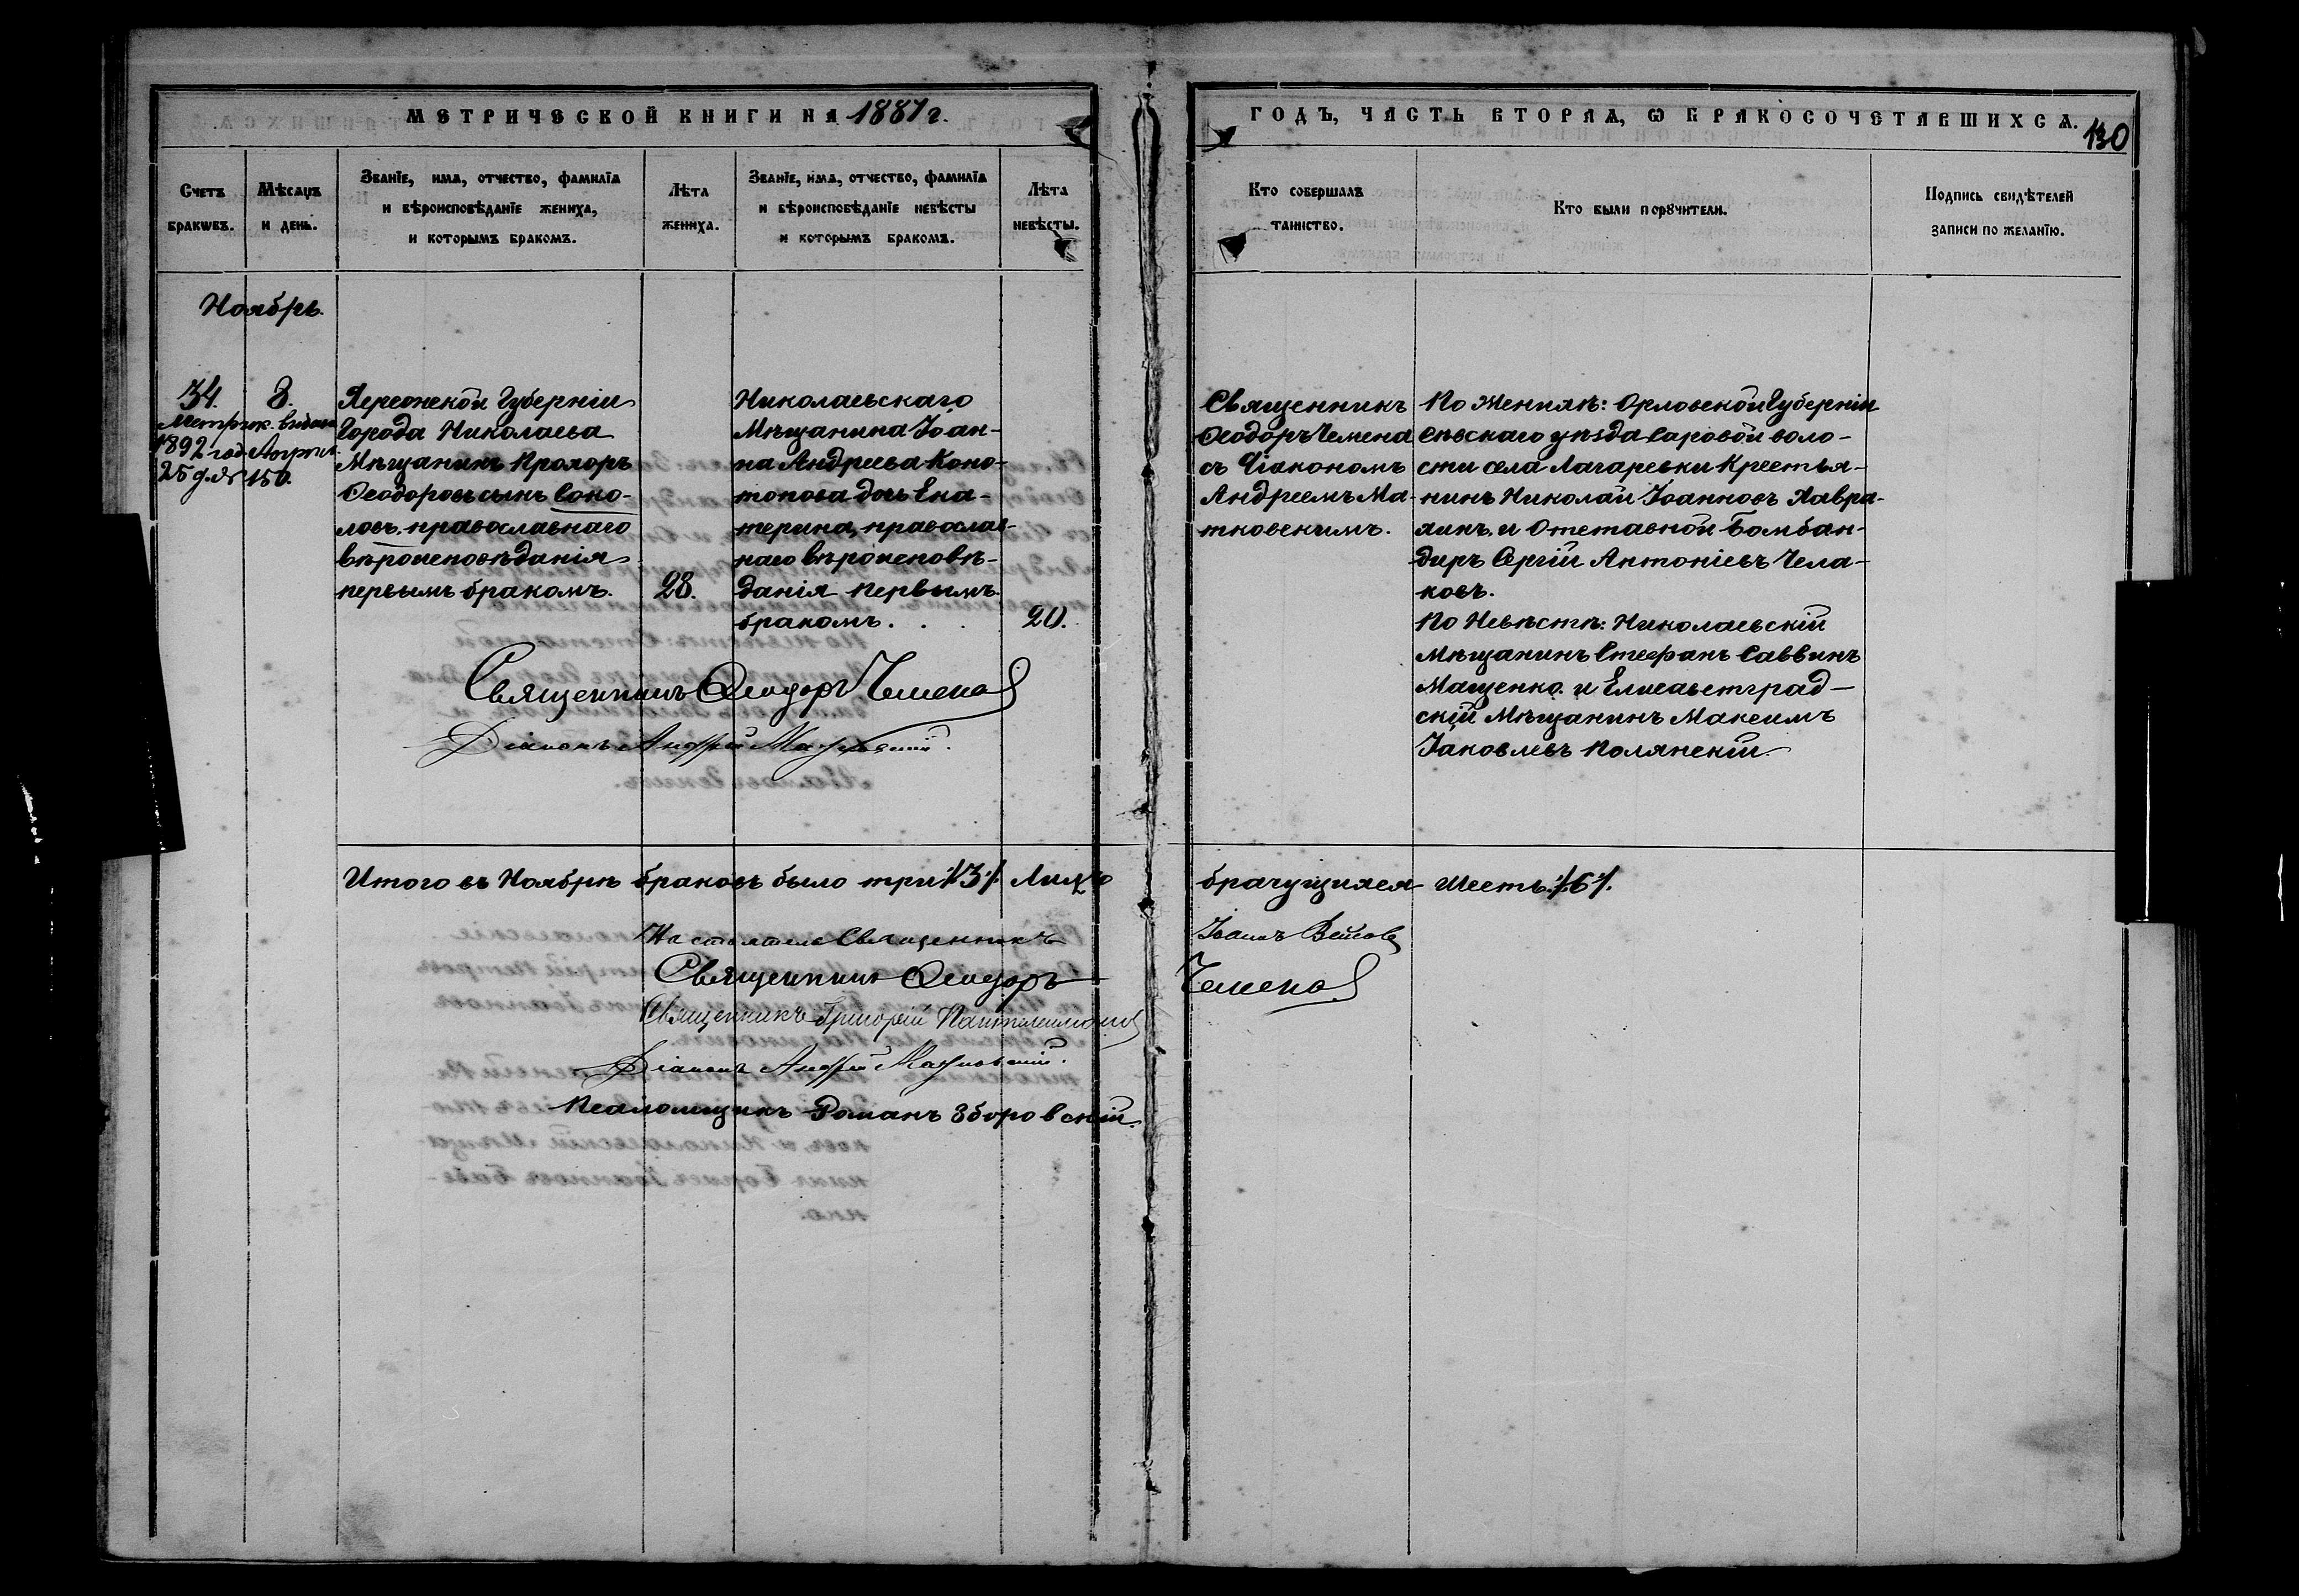 МЕТРИЧЕСКОЙ КНИГИ НА 1881 г.
ГОДЪ, ЧАСТЬ ВТОРАѦ, Ѡ БРАКОСОЧЕТАВШИХСѦ.
130
Счетъ браковъ.
Мѣсяцъ и день.
Званїе, имѧ, отчество, фамилїѧ
и вѣроисповѣданїе жениха,
и которымъ бракомъ.
Лѣта жениха.
Званїе, имѧ, отчество, фамилїѧ
и вѣроисповѣданїе невѣсты
и которымъ бракомъ.
Лѣта невѣсты.
Кто совершалъ таинство.
Кто были порꙋчители.
Подпись свидѣтелей
записи по желанїю.
Ноябрь.
34.
8.
Метрик. видана
1892 год Апрѣл.
25 д. № 150.
Херсонской Губерніи
Города Николаева
Мѣщанинъ Прохоръ
Ѳеодоровъ сынъ Соко-
ловъ, православнаго
вѣроисповѣданія
первымъ бракомъ.
28.
Николаевскаго
Мѣщанина Іоан-
на Андреева Коно-
топова дочь Ека-
терина, православ-
наго вѣроисповѣ-
данія первымъ
бракомъ.
20.
Священникъ
Ѳеодоръ Чемена
съ Діакономъ
Андреемъ Ма-
тковскимъ.
По Женихѣ: Орловской Губерніи
Сѣвскаго уѣзда Саровой воло-
сти села Лагаревки Крестья-
нинъ Николай Іоанновъ Хавра-
хинъ, и Отставной Бомбан-
диръ Сергій Антоніевъ Чела-
ковъ.
По Невѣстѣ: Николаевскій
Мѣщанинъ Стефанъ Саввинъ
Мащенко. и Елисаветград-
скій Мѣщанинъ Максимъ
Іаковлевъ Полянскій
Священникъ Ѳеодоръ Чемена
Діаконъ Андрей Матковскій.
Итого въ Ноябрѣ браковъ было три ٪3٪. Лицъ брачущихся шесть ٪6٪.
Настоятель Священникъ Іоаннъ
Священникъ Ѳеодоръ Чемена
Священникъ Григорій Пантелеимонов
Діаконъ Андрей Матковскій.
Псаломщикъ Романъ Зборовскій.